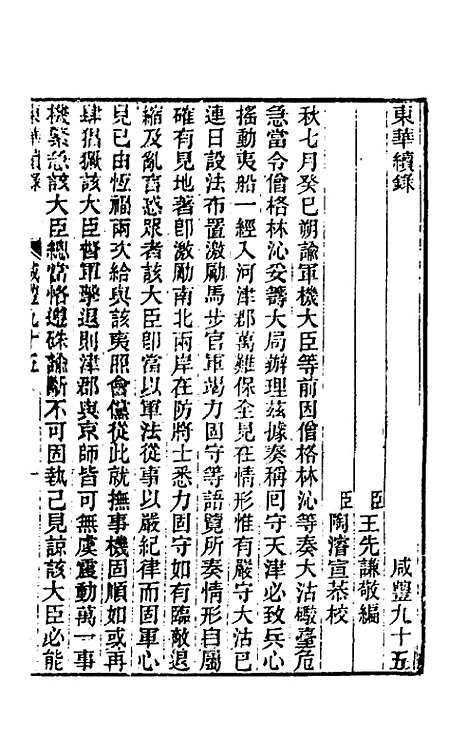 東華續錄 咸豐九十五
臣王先謙敬編
臣陶濬宣恭校
秋七月癸巳朔諭軍機大臣等前因僧格林沁等奏大沽礮臺危
急當令僧格林沁妥籌大局辦理茲據奏稱回守天津必致兵心
搖動夷船一經入河津郡萬難保全見在情形惟有嚴守大沽已
連日設法布置激勵馬步官軍竭力固守等語覽所奏情形自屬
確有見地著即激勵南北兩岸在防將士悉力固守如有臨敵退
縮及亂言惑眾者該大臣卽當以軍法從事以嚴紀律而固軍心
見已由恆福兩次給與該夷照會儻從此就撫事機固順如或再
肆猖獗該大臣督軍擊退則津郡與京師皆可無虞震動萬一事
機緊急該大臣總當恪遵硃諭斷不可固執己見諒該大臣必能
東華續錄 咸豐九十五 一